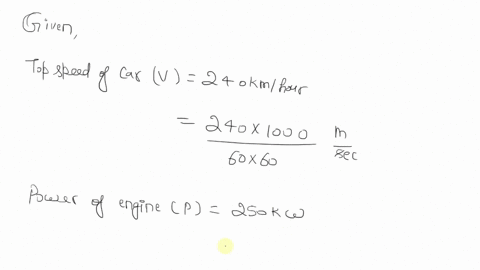 Given,
Top speed of car (V) = 240km/hour
= 240×1000 / 60×60 m/sec
Power of engine (P) = 250kw